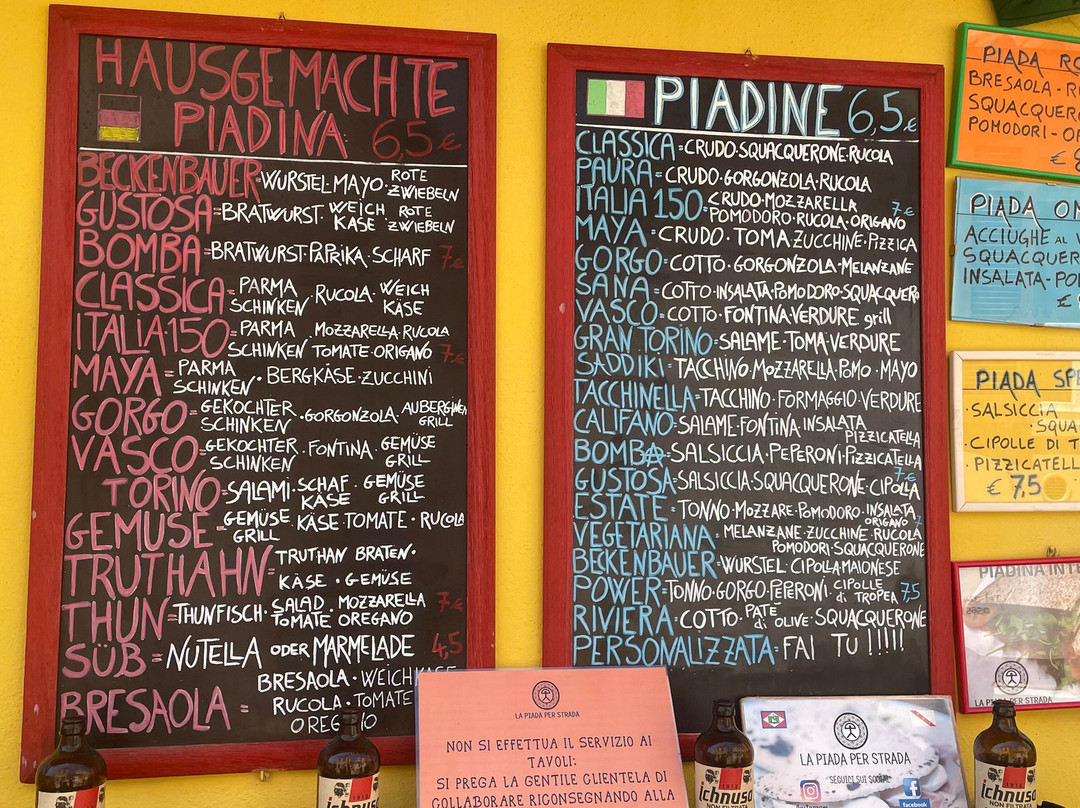 HAUSGEMACHTE
PIADINA 6,5€
BECKENBAUER=WURSTEL MAYO ROTE ZWIEBELN
GUSTOSA=BRATWURST. WEICH KÄSE ROTE ZWIEBELN
BOMBA=BRATWURST.PAPRIKA.SCHARF 7€
CLASSICA=PARMA SCHINKEN.RUCOLA.WEICH KÄSE
ITALIA.150=PARMA SCHINKEN.MOZZARELLA.RUCOLA TOMATE.ORIGANO 7€
MAYA=PARMA SCHINKEN.BERGKÄSE.ZUCCHINI
GORGO=GEKOCHTER SCHINKEN.GORGONZOLA.AUBERGINEN GRILL
VASCO=GEKOCHTER SCHINKEN.FONTINA.GEMÜSE GRILL
TORINO=SALAMI.SCHAF KÄSE.GEMÜSE GRILL
GEMUSE=GEMÜSE GRILL.KÄSE TOMATE.RUCOLA
TRUTHAHN=TRUTHAN BRATEN.
KÄSE.GEMÜSE
THUN=THUNFISCH.SALAD.MOZZARELLA TOMATE OREGANO 7€
SÜß=NUTELLA ODER MARMELADE 4,5
BRESAOLA=BRESAOLA.WEICHKÄSE
RUCOLA.TOMATE
PIADINE 6,5€
CLASSICA=CRUDO.SQUACQUERONE.RUCOLA
PAURA=CRUDO.GORGONZOLA.RUCOLA
ITALIA 150=CRUDO.MOZZARELLA
POMODORO.RUCOLA.ORIGANO 7€
MAYA=CRUDO.TOMA ZUCCHINE.PIZZICA
GORGO=COTTO.GORGONZOLA.MELANZANE
SANA=COTTO.INSALATA.POMODORO.SQUACQUERO
VASCO=COTTO.FONTINA.VERDURE grill
GRAN TORINO=SALAME.TOMA.VERDURE
SADDIKI=TACCHINO.MOZZARELLA.POMO.MAYO
TACCHINELLA=TACCHINO.FORMAGGIO.VERDURE
CALIFANO=SALAME.FONTINA.INSALATA
PIZZICATELLA
BOMBA=SALSICCIA.PEPERONI.PIZZICATELLA
GUSTOSA=SALSICCIA.SQUACQUERONE.CIPOLLA 7€
ESTATE=TONNO.MOZZARE.POMODORO.INSALATA ORIGANO 7
VEGETARIANA=MELANZANE.ZUCCHINE.RUCOLA
POMODORI.SQUACQUERONE
BECKENBAUER=WÜRSTEL.CIPOLLA.MAIONESE
POWER=TONNO.GORGO.PEPERONI.CIPOLLE di TROPEA 7,5
RIVIERA=COTTO.PATE di OLIVE.SQUACQUERONE
PERSONALIZZATA=FAI TU !!!!!
PIADA
BRESAOLA.
SQUACQUER
POMODORI-
€
PIADA
ACCIUGHE AL
SQUACQUER
INSALATA-
€
PIADA
.SALSICCIA
.CIPOLLE DI
.PIZZICATELL
€ 7,5
LA PIADA PER STRADA
LA PIADA PER STRADA
NON SI EFFETTUA IL SERVIZIO AI
TAVOLI:
SI PREGA LA GENTILE CLIENTELA DI
COLLABORARE RICONSEGNANDO ALLA
LA PIADA PER STRADA
SEGUICI SUI SOCIAL
facebook
Ichnusa
Ichnusa
NON FILTRATA
Ichnusa
NON FILTRATA